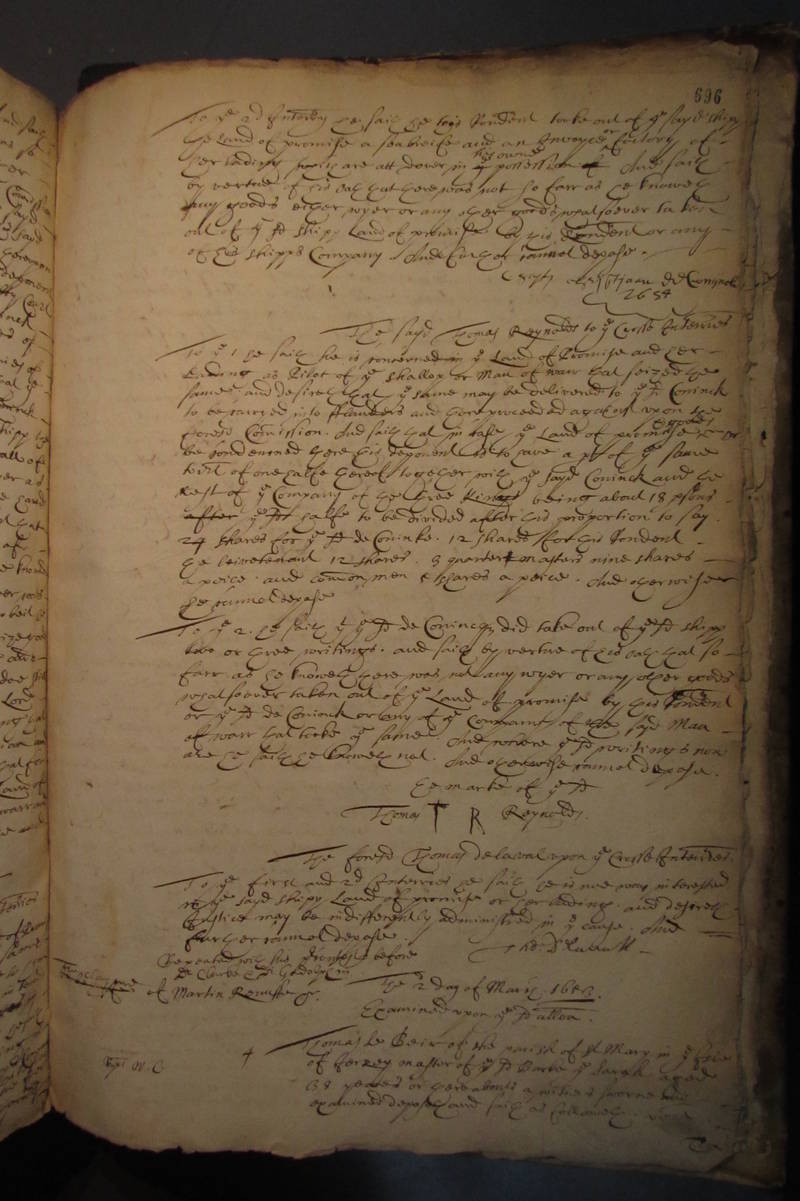 696
To ye 2d Interry he saith he this Rendent tooke out of ye sayd shipp
the Land of promise a sea briefe and an Invoyce or factory of
her lading which are att dover in his owne possession And saith
by vertue of his oath that there was not so farr as he knoweth
any goods either wyer or any other goods whatsoever taken
out of ye sd shipp Land of promise by his Rendent or any
of his shipps Company And further cannot depose.
The sayd Thomas Reynolds to ye Crosse Interries
To ye 1 he saith he is concerned in ye Land of Promise and her
Lading as Pilot of ye shallop or Man of warr that seized the
same and desireth that ye same may be delivered to ye sd Coninck
to be carried into fflanders and there proceeded against upon the
foresd Comission. And saith that in case ye Land of promise
be condemned there this deponent is to have a pt of ye same
of one halfe thereof together with ye sayd Coninck and the
rest of ye Company of the being about 18 psons
ye sd halfe to be divided after this proportion to say
24 shares for ye sd de Coninke. 12 shares for this Rendent
the Leivetenant 12 shares. 3 quarter masters nine shares
a peice. and common men shares a peice. And otherwise
he cannot depose
To ye 2. he saith yt ye sd de Coninck did take out of ye sd shipp
two or three writings. and saith by vertue of his oath that so
farr as he knoweth there was not any wyer or any other goods
whatsoever taken out of ye Land of promise by this Rendent
or ye sd de Coninck or any of ye Company of the sayd Man
of warr that tooke ye same. And where ye sd writings now
are he saith he knoweth not. And otherwise cannot depose.
The marke of ye sd
Thomas T R Reynolds.
The foresd Thomas delavall upon ye Crosse Interries.
To ye first and 2d Interries he saith he is noe way interested
in ye sayd shipp Land of promise or her lading. and desireth
Justice may be indifferently administred in ye cause. And
further cannot depose
Repeated with the before
Dr Clarke Godolphin
of Martin
The 2 day of
Examined upon ye sd allon.
Thomas Le of the parish of St Mary in ye Isle
of Jersey master of ye sd Barke ye Sarah aged
38 yeares or thereabouts a witnes sworne and
examined deposeth and saith as followeth.